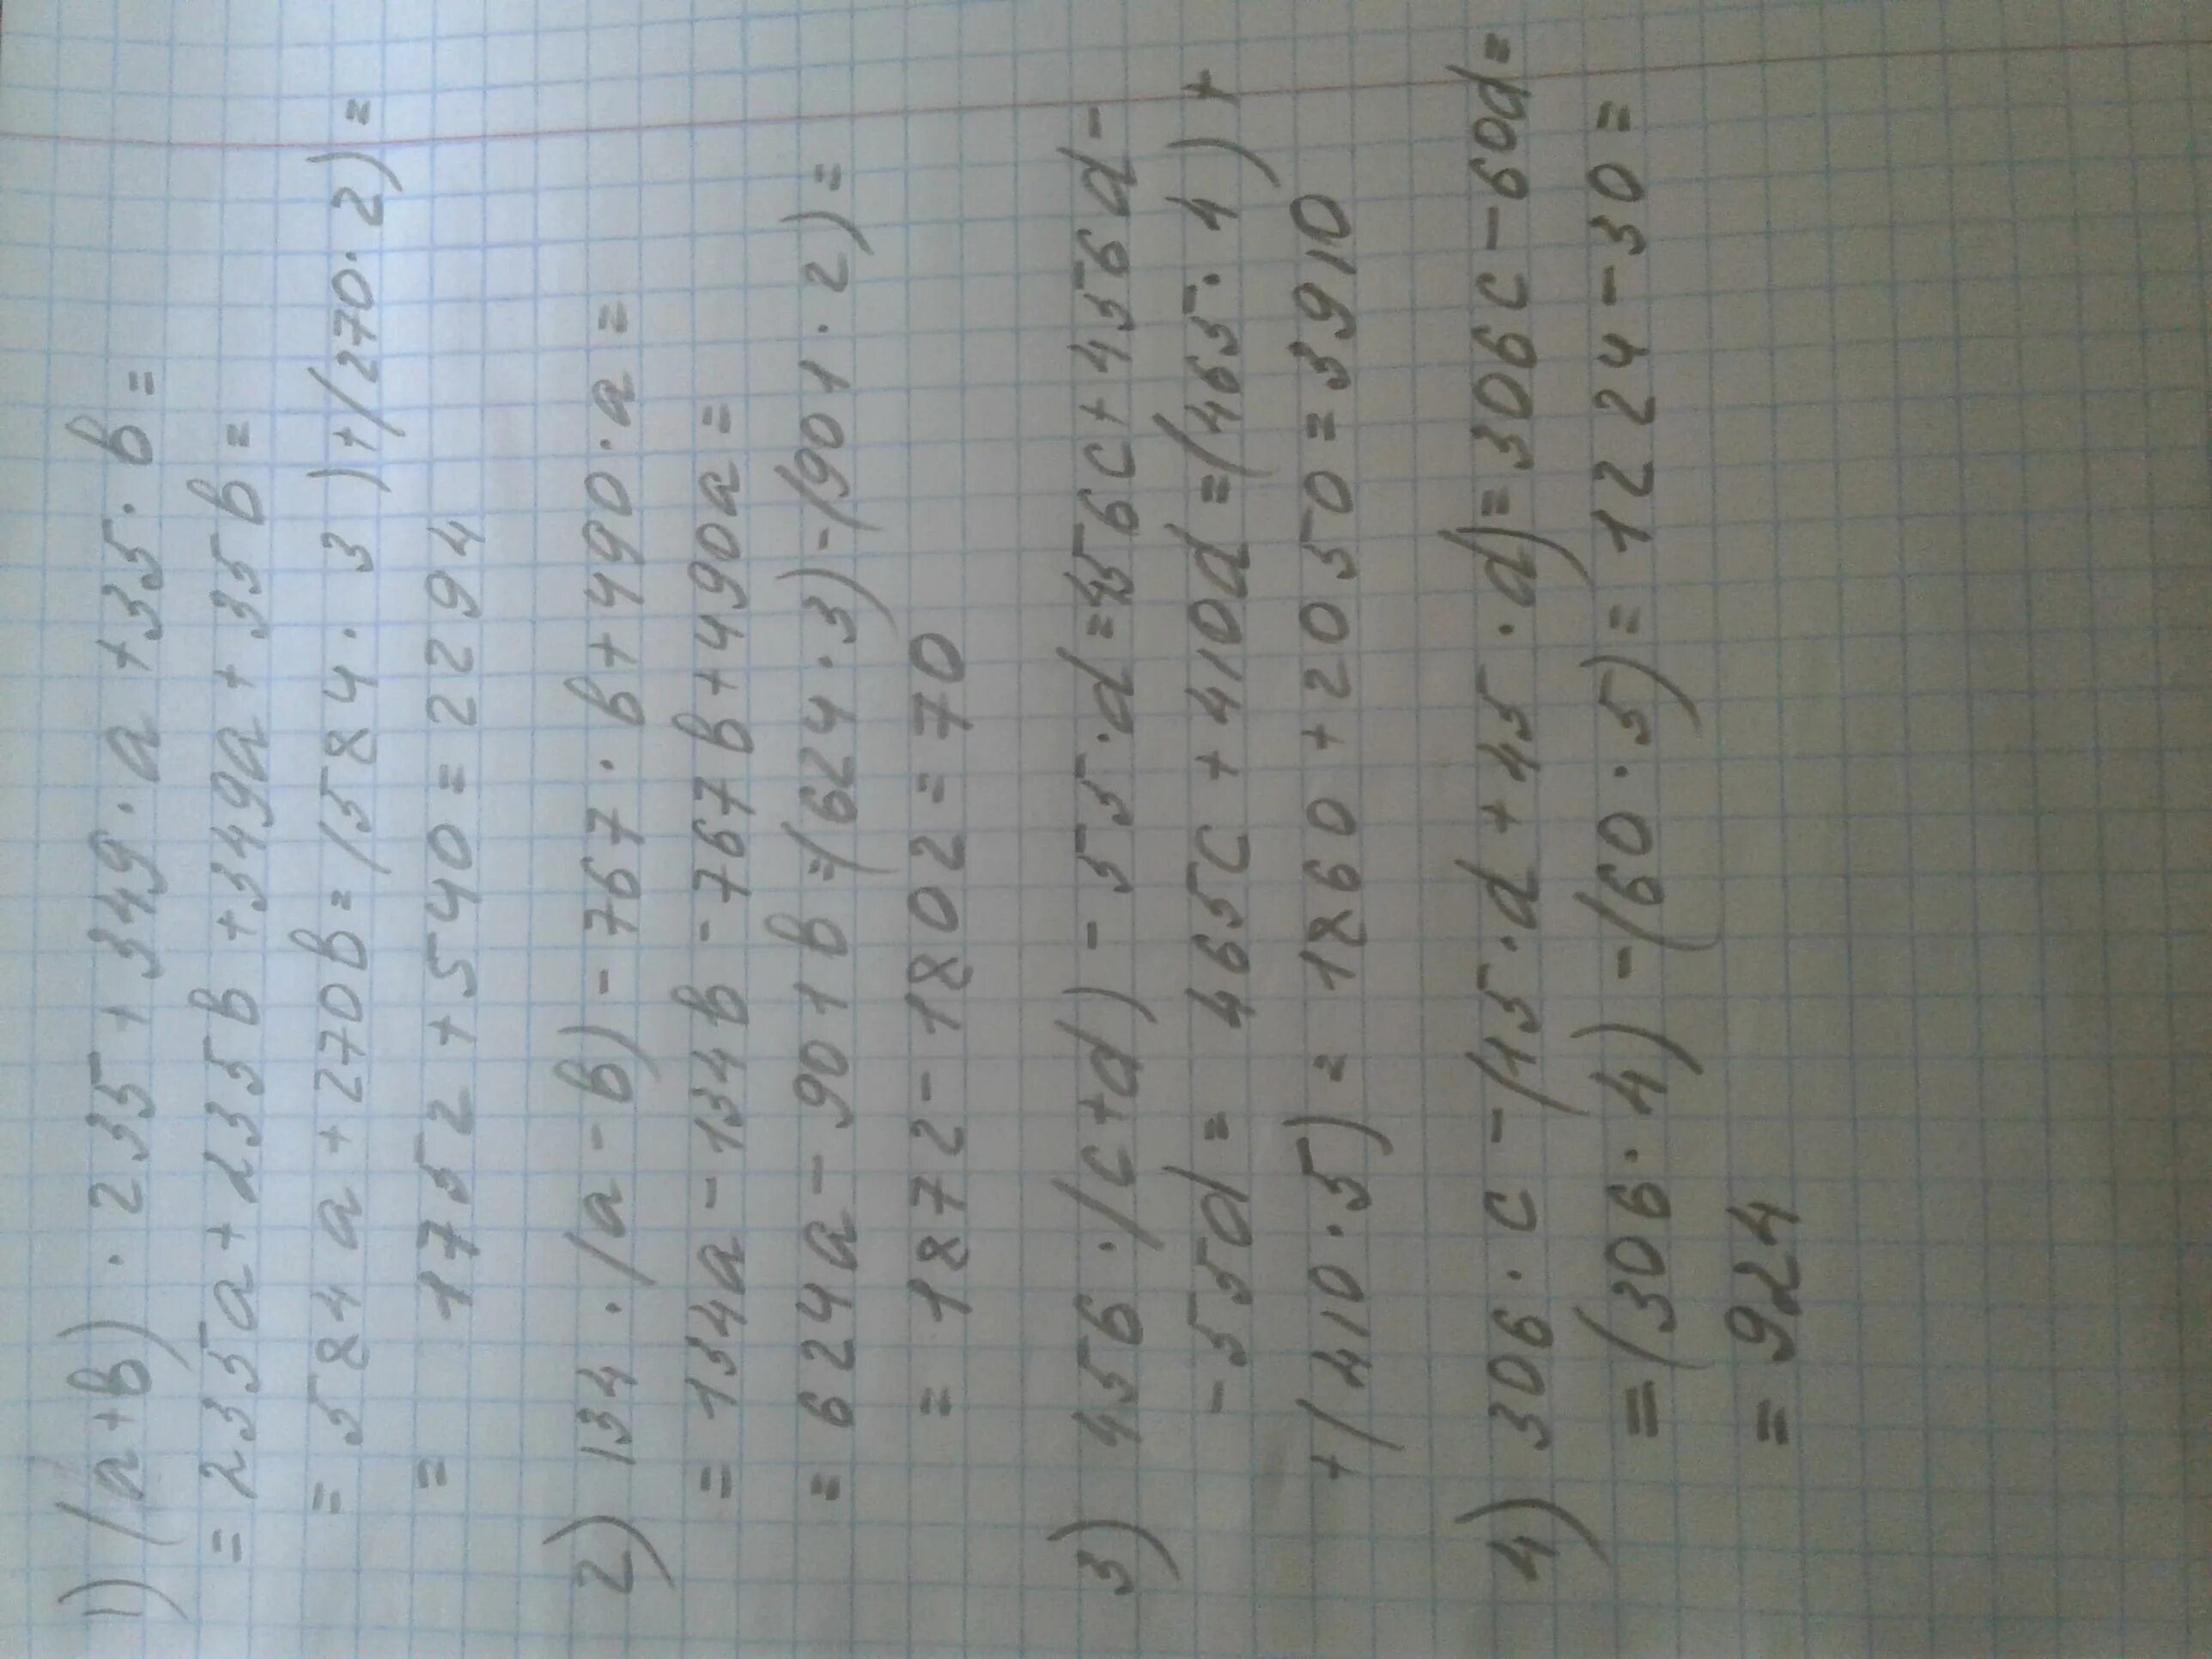 1) (a+b) · 235 + 349 · a + 35 · b =
= 235a + 235b + 349a + 35b =
= 584a + 270b = (584 · 3) + (270 · 2) =
= 1752 + 540 = 2294
2) 134 · (a - b) - 767 · b + 490 · a =
= 134a - 134b - 767b + 490a =
= 624a - 901b = (624 · 3) - (901 · 2) =
= 1872 - 1802 = 70
3) 456 · (c+d) - 55 · d = 456c + 456d -
- 55d = 465c + 410d = (465 · 4) +
+ (410 · 5) = 1860 + 2050 = 3910
4) 306 · c - (15 · d + 45 · d) = 306c - 60d =
= (306 · 4) - (60 · 5) = 1224 - 30 =
= 924